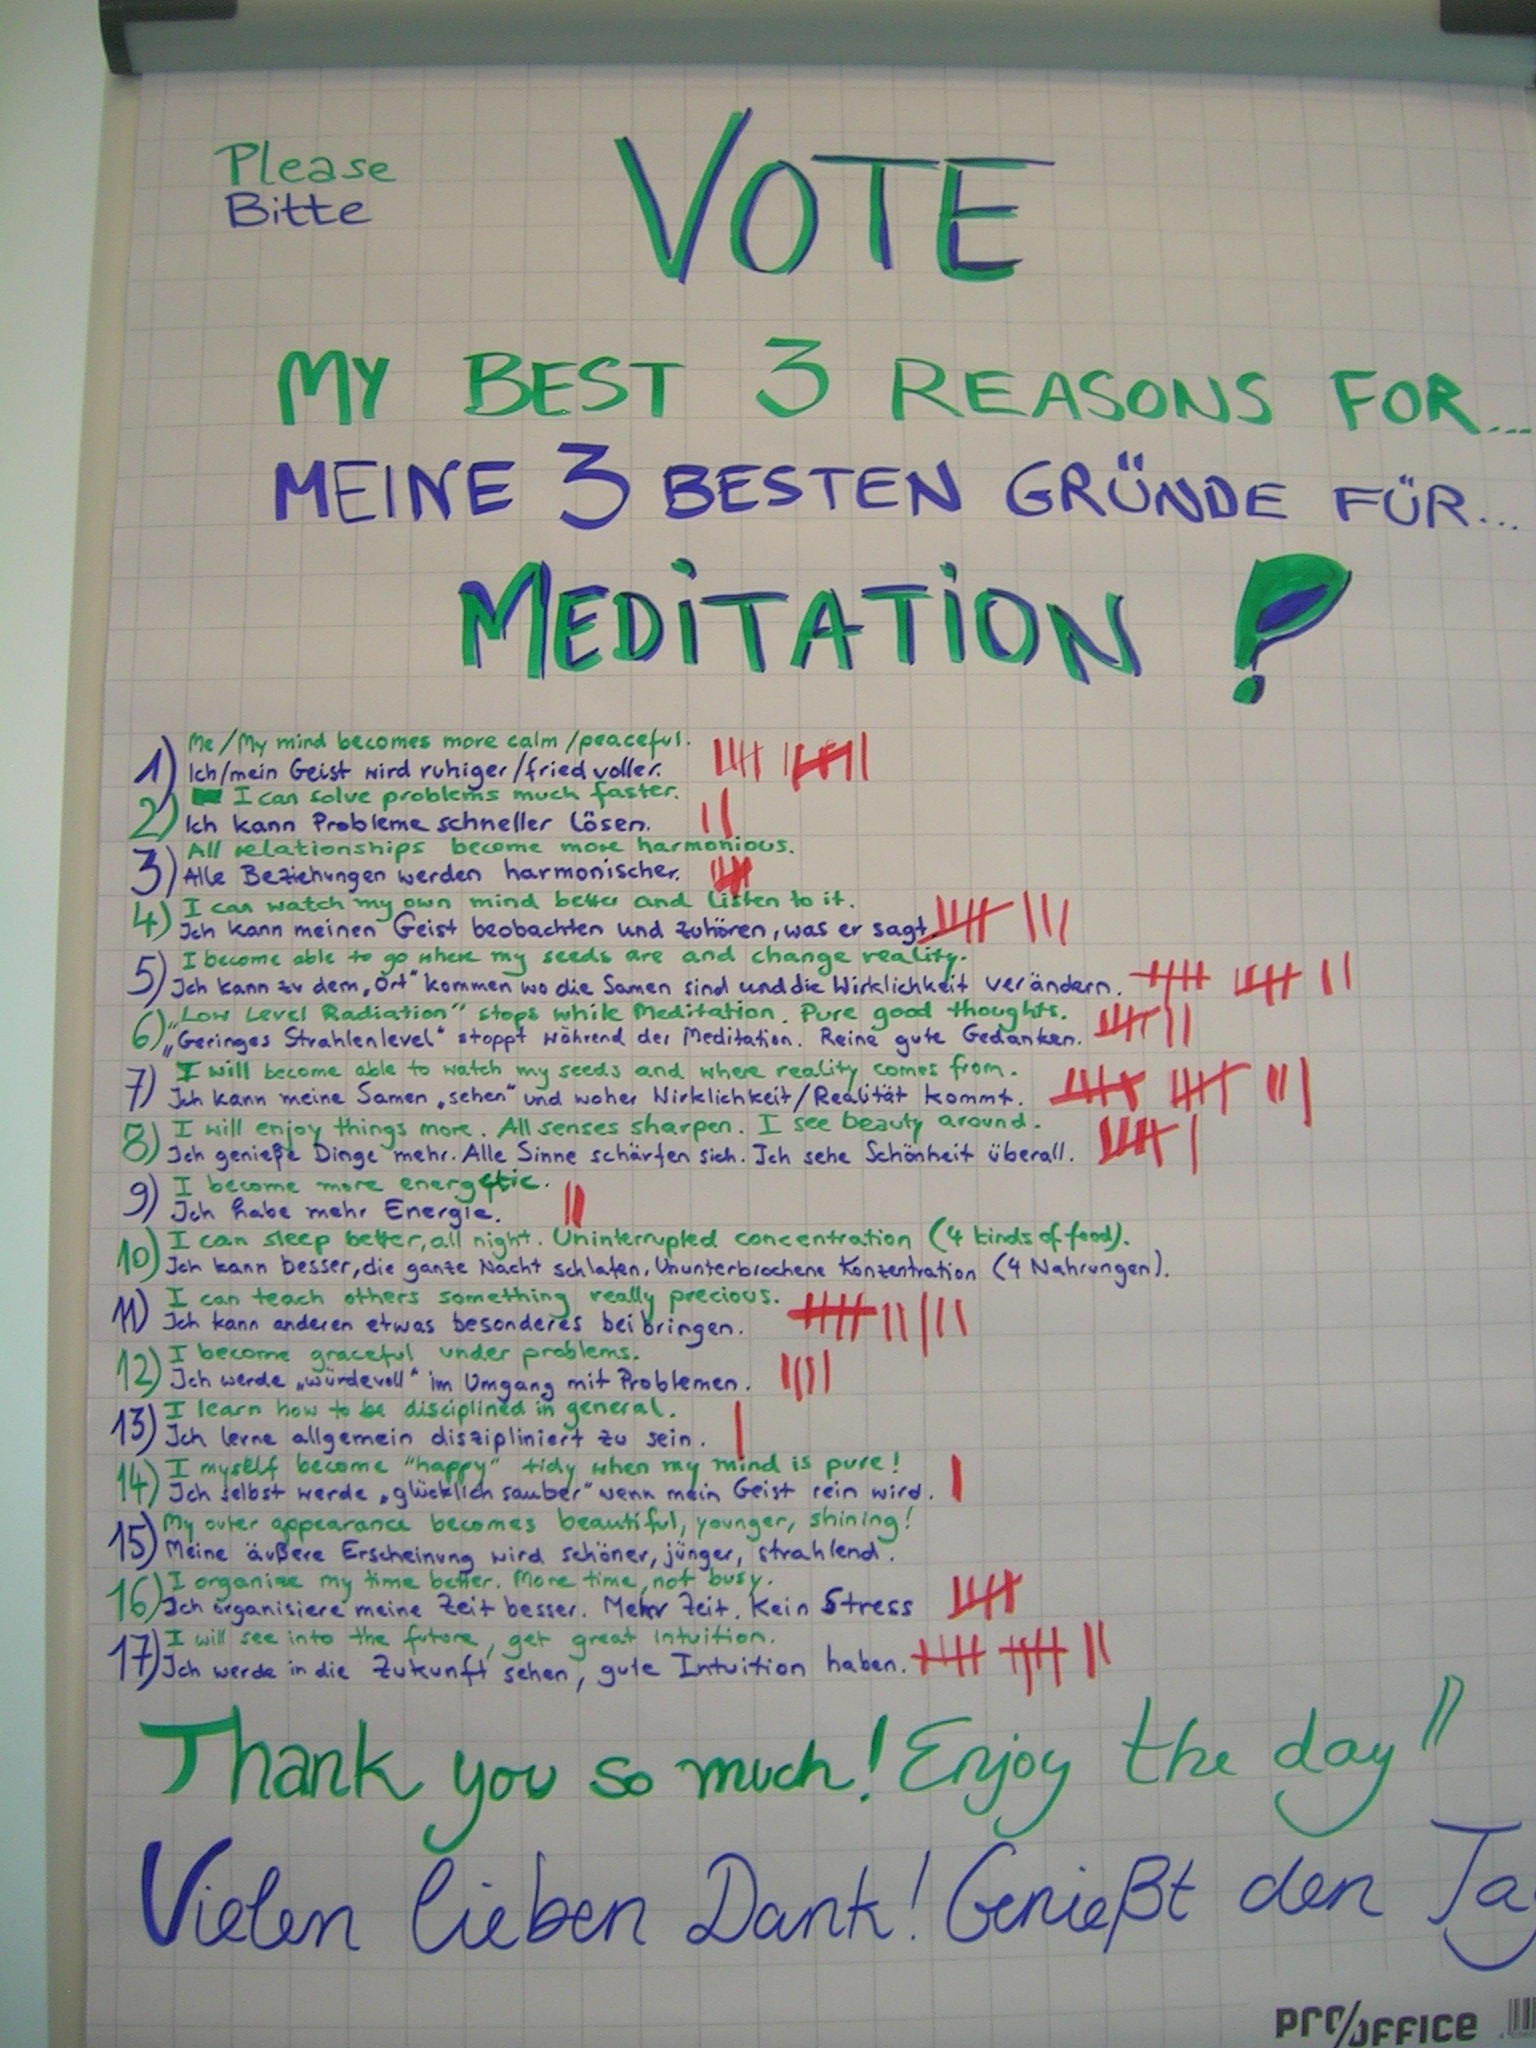 Please
Bitte
VOTE
MY BEST 3 REASONS FOR...
MEINE 3 BESTEN GRÜNDE FÜR...
MEDiTATiON
1) Me/My mind becomes more calm/peaceful.
Ich/mein Geist wird ruhiger/friedvoller.
2) I can solve problems much faster.
Ich kann Probleme schneller lösen.
3) All relationships become more harmonious.
Alle Beziehungen werden harmonischer.
4) I can watch my own mind better and listen to it.
Ich kann meinen Geist beobachten und zuhören, was er sagt.
5) I become able to go where my seeds are and change reality.
Ich kann zu dem „Ort“ kommen wo die Samen sind und die Wirklichkeit verändern.
6) „Low Level Radiation“ stops while Meditation. Pure good thoughts.
„Geringes Strahlenlevel“ stoppt während der Meditation. Reine gute Gedanken.
7) I will become able to watch my seeds and where reality comes from.
Ich kann meine Samen „sehen“ und woher Wirklichkeit/Realität kommt.
8) I will enjoy things more. All senses sharpen. I see beauty around.
Ich genieße Dinge mehr. Alle Sinne schärfen sich. Ich sehe Schönheit überall.
9) I become more energetic.
Ich habe mehr Energie.
10) I can sleep better, all night. Uninterrupted concentration (4 kinds of food).
Ich kann besser, die ganze Nacht schlafen. Ununterbrochene Konzentration (4 Nahrungen).
11) I can teach others something really precious.
Ich kann anderen etwas besonderes beibringen.
12) I become graceful under problems.
Ich werde „würdevoll“ im Umgang mit Problemen.
13) I learn how to be disciplined in general.
Ich lerne allgemein diszipliniert zu sein.
14) I myself become "happy" tidy when my mind is pure!
Ich selbst werde „glücklich sauber“ wenn mein Geist rein wird.
15) My outer appearance becomes beautiful, younger, shining!
Meine äußere Erscheinung wird schöner, jünger, strahlend.
16) I organize my time better. More time, not busy.
Ich organisiere meine Zeit besser. Mehr Zeit. Kein Stress
17) I will see into the future, get great intuition.
Ich werde in die Zukunft sehen, gute Intuition haben.
Thank you so much! Enjoy the day!!
Vielen lieben Dank! Genießt den Ta
pro/office